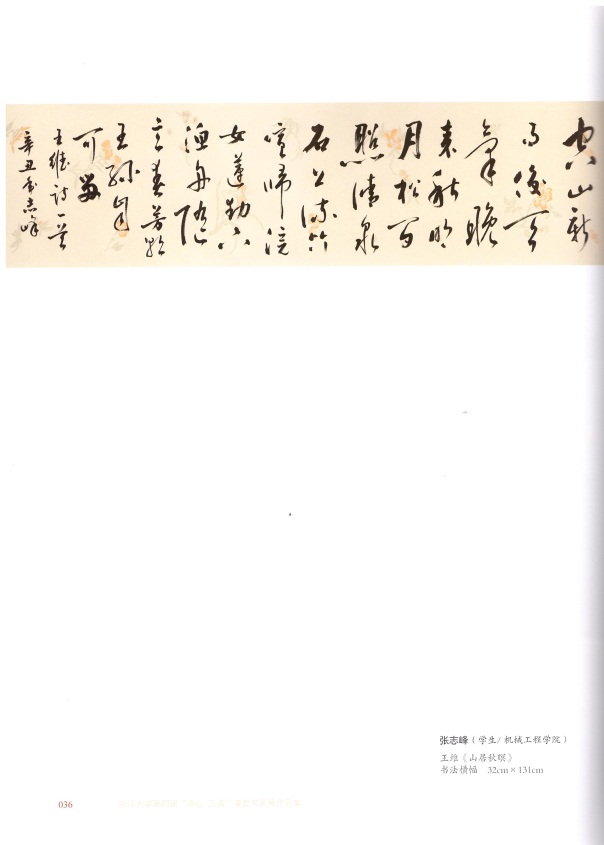 空山新
雨後天
氣晚
来秋明
月松间
照清泉
石上流竹
喧歸浣
女蓮動下
漁舟隨
意春芳歇
王孫自
可留
王維诗一首
辛丑志峰
张志峰（学生/机械工程学院）
王维《山居秋暝》
书法横幅 32cm×131cm
036